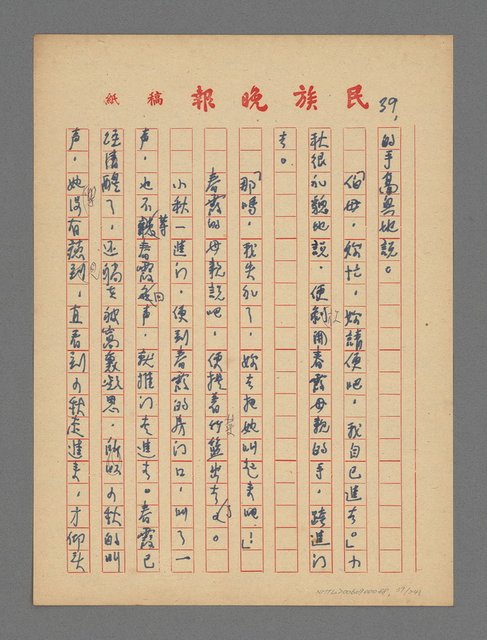 民族晚報 稿紙
39,
的手高興地說。
「伯母,妳忙,妳請便吧,我自己進去。」小
秋很禮貌地說,便鬆開春霞母親的手,踏進門
去。
「那嗎,我失禮了,妳去把她叫起來吧!」
春霞的母親說吧,便提著竹籃出去了。
小秋一進門,便到春霞的房門口,叫了一
声,也不等春霞回声,就推门走進去。春霞已
經清醒了,还躺在被窩裏想思,所以小秋的叫
声,她沒有聽到,直看到小秋走進来,才仰头